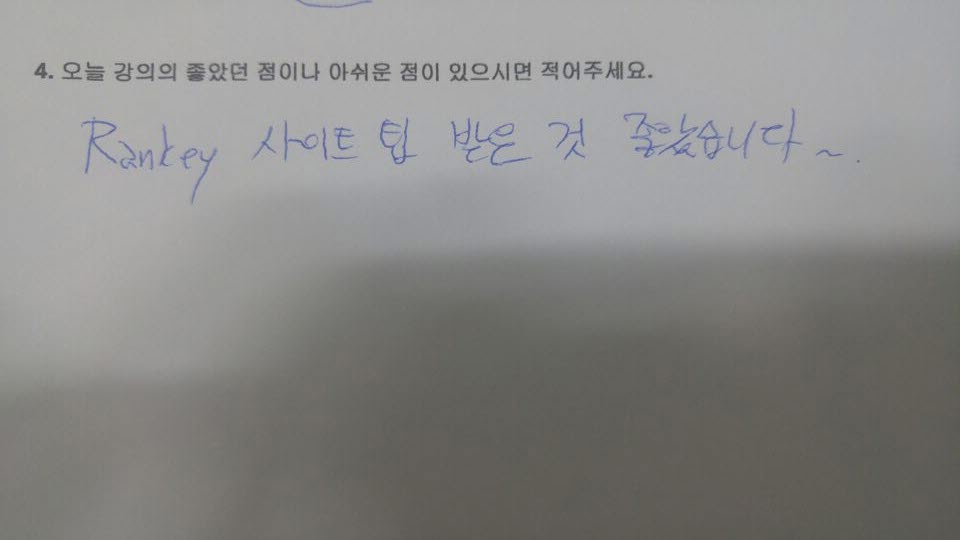 4. 오늘 강의의 좋았던 점이나 아쉬운 점이 있으시면 적어주세요.
Rankey 사이트 팁 받은 것 좋았습니다~.